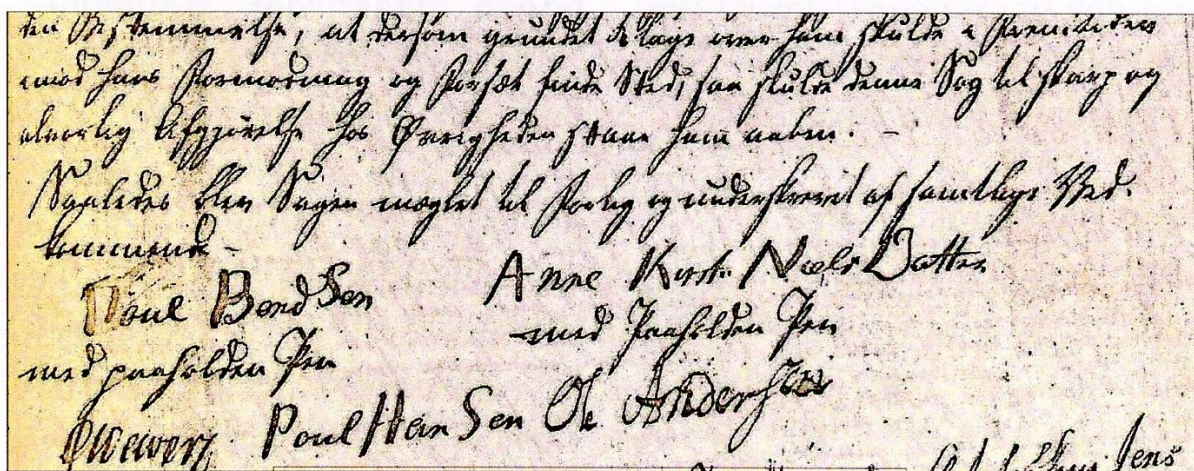 den Bestemmelse, at dersom grundet Klage over ham skulde i Fremtiden
mod hans Formodning og Forsæt finde Sted, saa skulde denne Sag til skarp og
alvorlig Afgjørelse hos Øvrigheden staae ham aaben. -
Saaledes blev Sagen mæglet til Forlig og underskrevet af samtlige Ved-
kommende -
Poul BendSen Anne Kirst: Niels Datter
med paaholden Pen med Paaholden Pen
Poul Han Sen Ole AnderSen
Jens